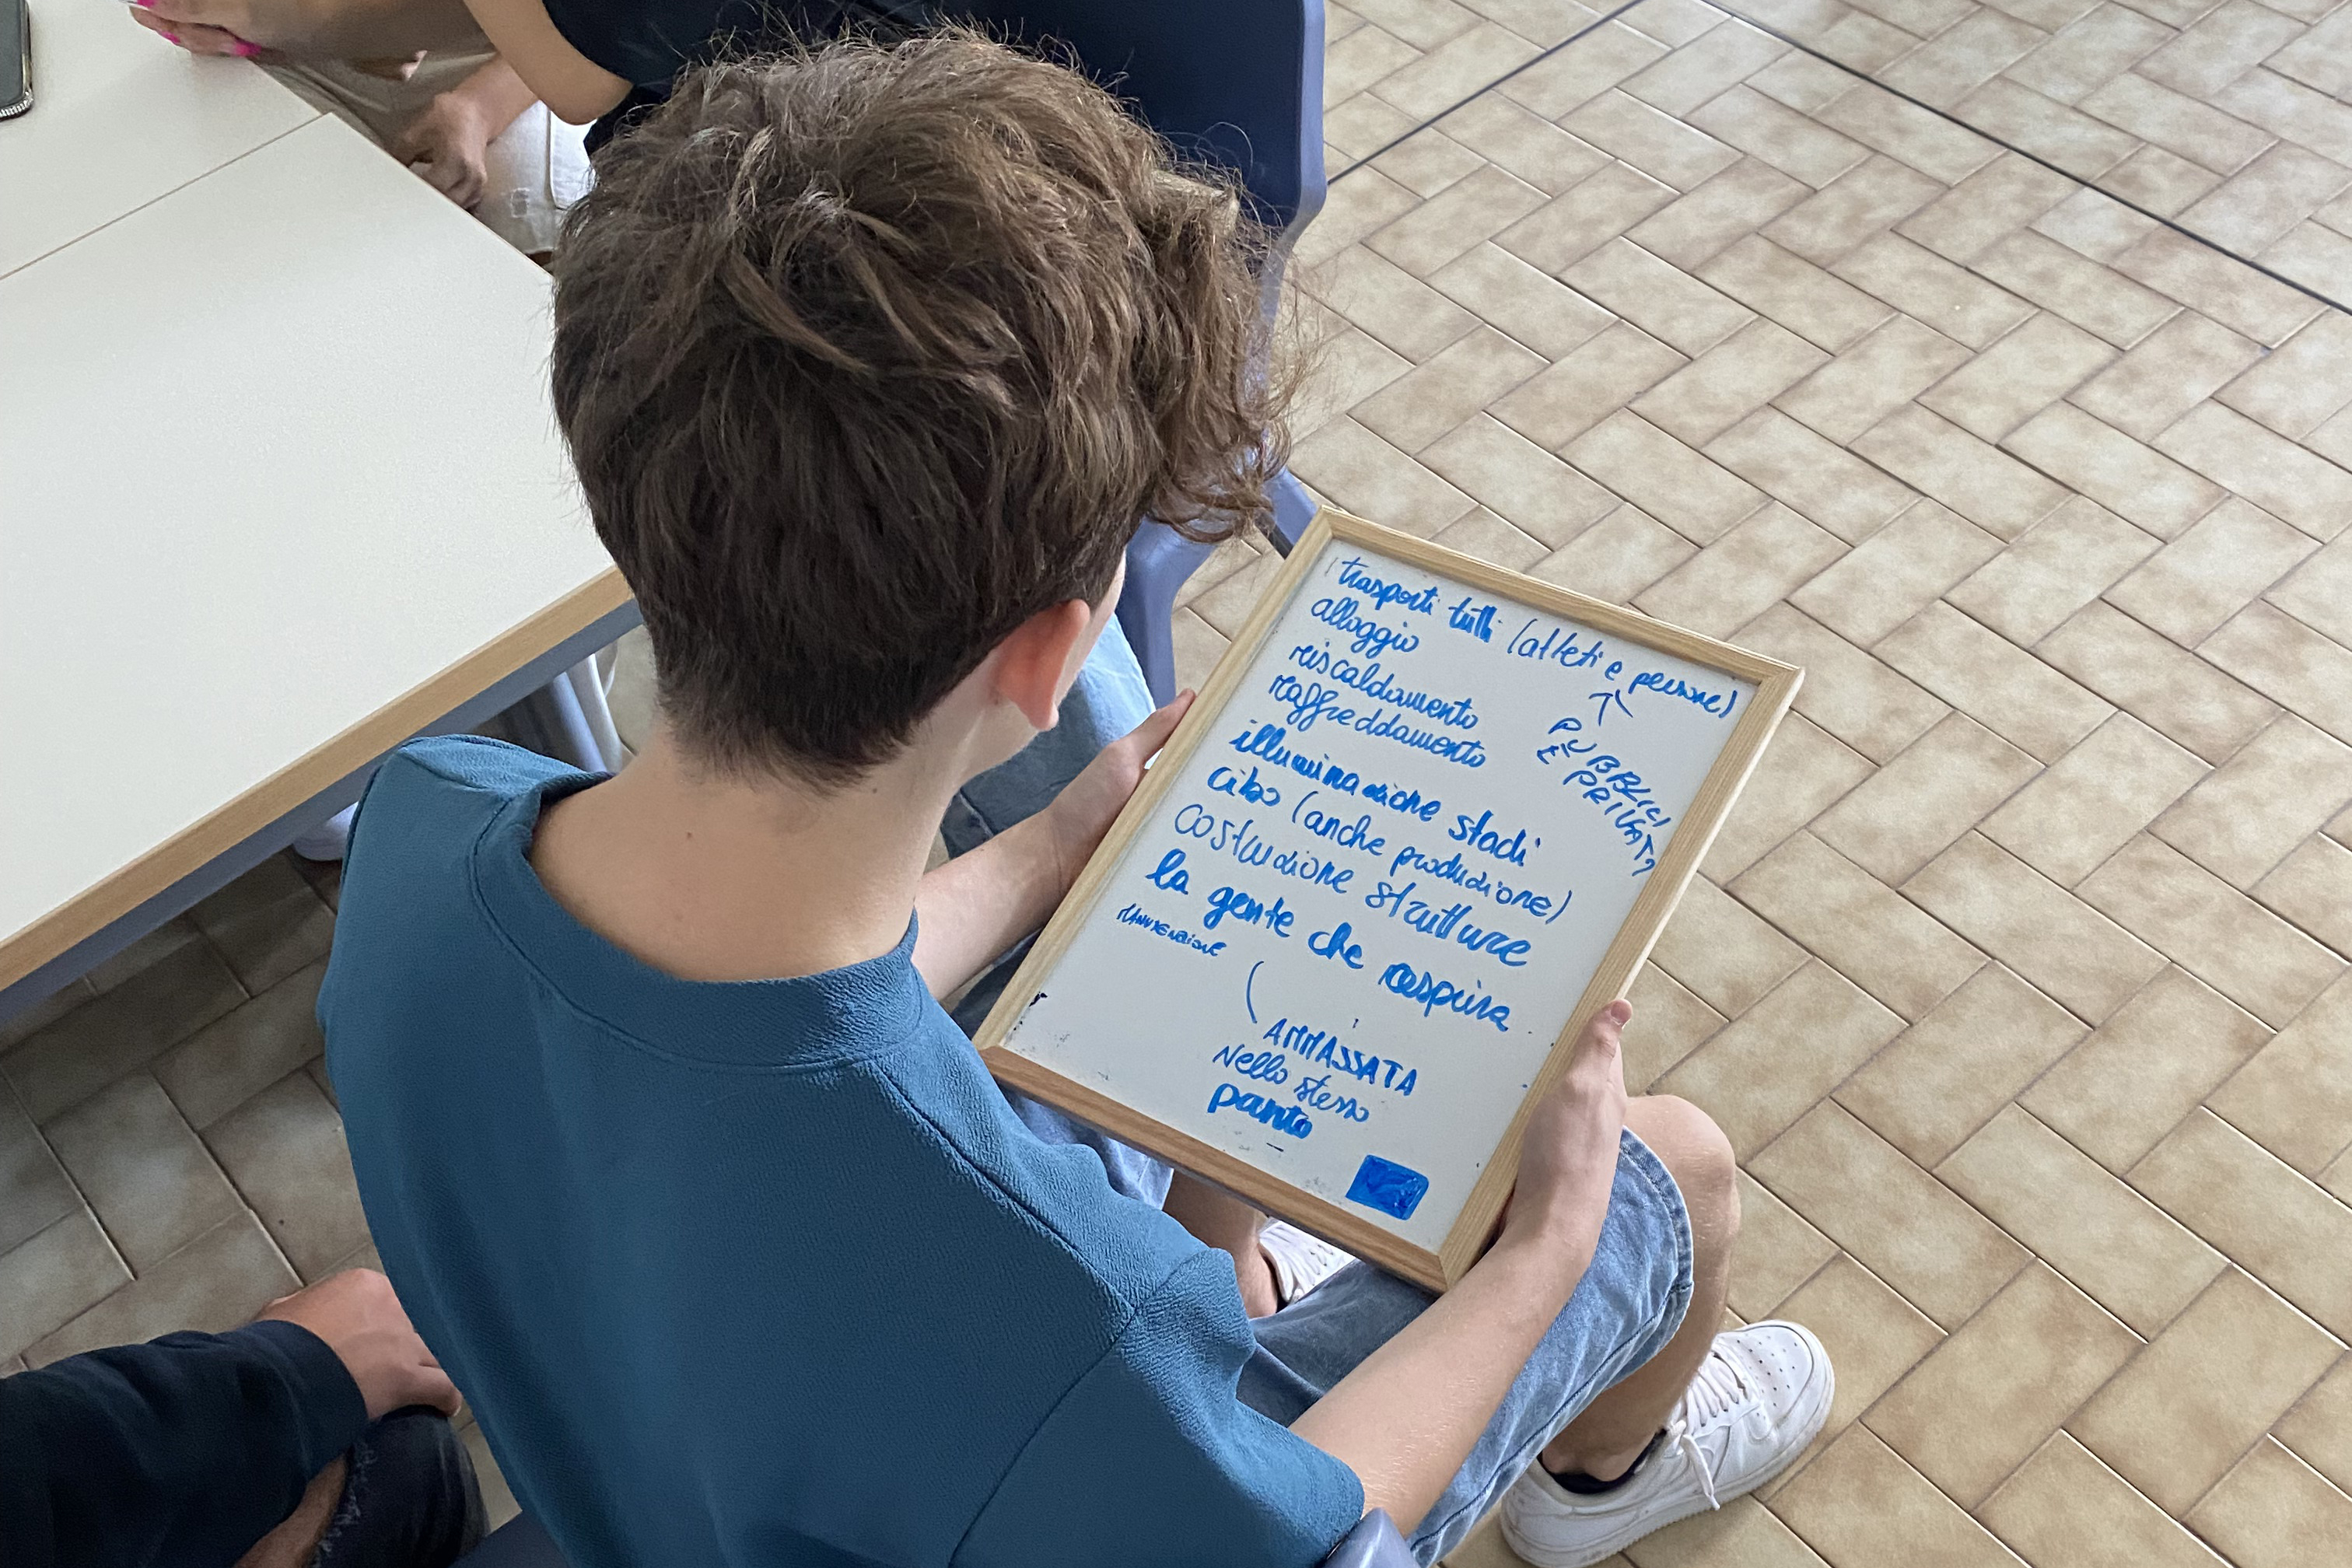 trasporti tutti (atleti e persone)
PUBBLICI
E PRIVATI
alloggio
riscaldamento
raffreddamento
illuminazione stadi
cibo (anche produzione)
costruzione strutture
la gente che respira
MANUTENZIONE
AMMASSATA
Nello stesso
punto